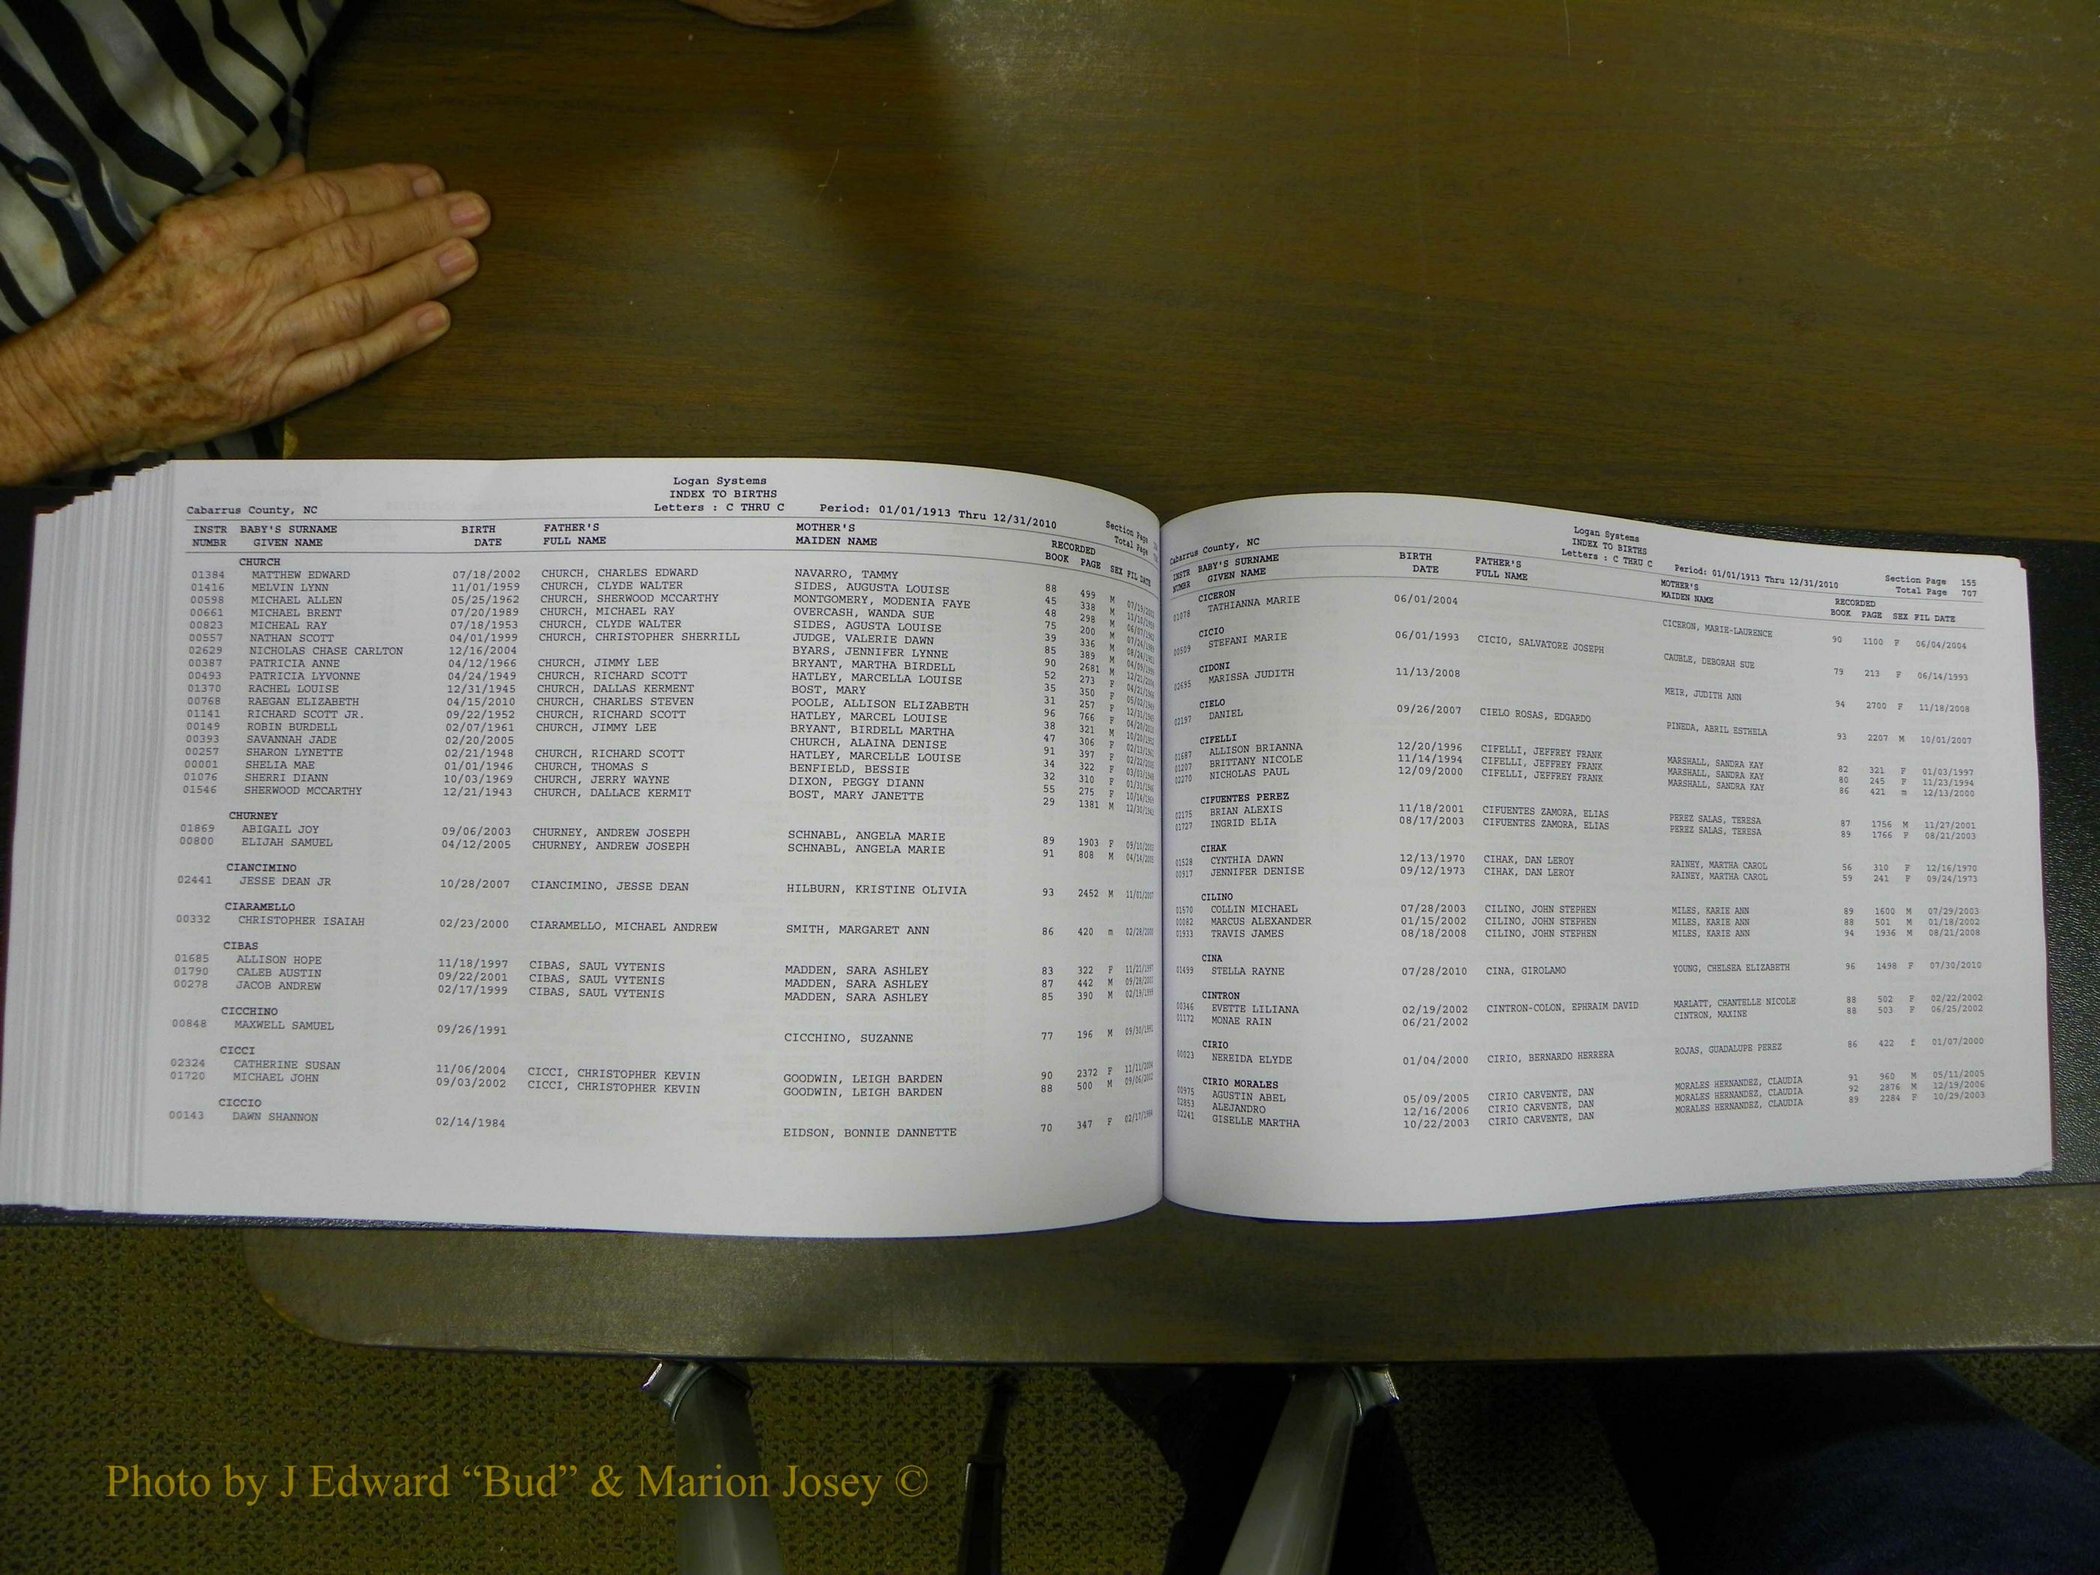 Logan Systems
INDEX TO BIRTHS
Cabarrus County, NC Letters : C THRU C Period: 01/01/1913 Thru 12/31/2010 Section Page
Total Page
INSTR BABY'S SURNAME BIRTH FATHER'S MOTHER'S RECORDED
NUMBR GIVEN NAME DATE FULL NAME MAIDEN NAME BOOK PAGE SEX FIL DATE
CHURCH
01384 MATTHEW EDWARD 07/18/2002 CHURCH, CHARLES EDWARD NAVARRO, TAMMY 88 499 M
01416 MELVIN LYNN 11/01/1959 CHURCH, CLYDE WALTER SIDES, AUGUSTA LOUISE 45 338 M
00598 MICHAEL ALLEN 05/25/1962 CHURCH, SHERWOOD MCCARTHY MONTGOMERY, MODENIA FAYE 48 298 M
00661 MICHAEL BRENT 07/20/1989 CHURCH, MICHAEL RAY OVERCASH, WANDA SUE 75 200 M
00823 MICHEAL RAY 07/18/1953 CHURCH, CLYDE WALTER SIDES, AGUSTA LOUISE 39 336 M
00557 NATHAN SCOTT 04/01/1999 CHURCH, CHRISTOPHER SHERRILL JUDGE, VALERIE DAWN 85 389 M
02629 NICHOLAS CHASE CARLTON 12/16/2004 BYARS, JENNIFER LYNNE 90 2681 M
00387 PATRICIA ANNE 04/12/1966 CHURCH, JIMMY LEE BRYANT, MARTHA BIRDELL 52 273 F
00493 PATRICIA LYVONNE 04/24/1949 CHURCH, RICHARD SCOTT HATLEY, MARCELLA LOUISE 35 350 F
01370 RACHEL LOUISE 12/31/1945 CHURCH, DALLAS KERMENT BOST, MARY 31 257 F
00768 RAEGAN ELIZABETH 04/15/2010 CHURCH, CHARLES STEVEN POOLE, ALLISON ELIZABETH 96 766 F
01141 RICHARD SCOTT JR. 09/22/1952 CHURCH, RICHARD SCOTT HATLEY, MARCEL LOUISE 38 321 M
00149 ROBIN BURDELL 02/07/1961 CHURCH, JIMMY LEE BRYANT, BIRDELL MARTHA 47 306 F
00393 SAVANNAH JADE 02/20/2005 CHURCH, ALAINA DENISE 91 397 F
00257 SHARON LYNETTE 02/21/1948 CHURCH, RICHARD SCOTT HATLEY, MARCELLE LOUISE 34 322 F
00001 SHELIA MAE 01/01/1946 CHURCH, THOMAS S BENFIELD, BESSIE 32 310 F
01076 SHERRI DIANN 10/03/1969 CHURCH, JERRY WAYNE DIXON, PEGGY DIANN 55 275 F
01546 SHERWOOD MCCARTHY 12/21/1943 CHURCH, DALLACE KERMIT BOST, MARY JANETTE 29 1381 M
CHURNEY
01869 ABIGAIL JOY 09/06/2003 CHURNEY, ANDREW JOSEPH SCHNABL, ANGELA MARIE 89 1903 F
00800 ELIJAH SAMUEL 04/12/2005 CHURNEY, ANDREW JOSEPH SCHNABL, ANGELA MARIE 91 808 M
CIANCIMINO
02441 JESSE DEAN JR 10/28/2007 CIANCIMINO, JESSE DEAN HILBURN, KRISTINE OLIVIA 93 2452 M 11/01/2007
CIARAMELLO
00332 CHRISTOPHER ISAIAH 02/23/2000 CIARAMELLO, MICHAEL ANDREW SMITH, MARGARET ANN 86 420 m 02/28/2000
CIBAS
01685 ALLISON HOPE 11/18/1997 CIBAS, SAUL VYTENIS MADDEN, SARA ASHLEY 83 322 F 11/21/1997
01790 CALEB AUSTIN 09/22/2001 CIBAS, SAUL VYTENIS MADDEN, SARA ASHLEY 87 442 M
00278 JACOB ANDREW 02/17/1999 CIBAS, SAUL VYTENIS MADDEN, SARA ASHLEY 85 390 M 02/19/1999
CICCHINO
00848 MAXWELL SAMUEL 09/26/1991 CICCHINO, SUZANNE 77 196 M 09/30/1991
CICCI
02324 CATHERINE SUSAN 11/06/2004 CICCI, CHRISTOPHER KEVIN GOODWIN, LEIGH BARDEN 90 2372 F
01720 MICHAEL JOHN 09/03/2002 CICCI, CHRISTOPHER KEVIN GOODWIN, LEIGH BARDEN 88 500 M 09/06/2002
CICCIO
00143 DAWN SHANNON 02/14/1984 EIDSON, BONNIE DANNETTE 70 347 F 02/17/1984
Logan Systems
INDEX TO BIRTHS
Cabarrus County, NC Letters : C THRU C Period: 01/01/1913 Thru 12/31/2010 Section Page 155
Total Page 707
INSTR BABY'S SURNAME BIRTH FATHER'S MOTHER'S RECORDED
NUMBR GIVEN NAME DATE FULL NAME MAIDEN NAME BOOK PAGE SEX FIL DATE
CICERON
01078 TATHIANNA MARIE 06/01/2004 CICERON, MARIE-LAURENCE 90 1100 F 06/04/2004
CICIO
00509 STEFANI MARIE 06/01/1993 CICIO, SALVATORE JOSEPH CAUBLE, DEBORAH SUE 79 213 F 06/14/1993
CIDONI
02695 MARISSA JUDITH 11/13/2008 MEIR, JUDITH ANN 94 2700 F 11/18/2008
CIELO
02197 DANIEL 09/26/2007 CIELO ROSAS, EDGARDO PINEDA, ABRIL ESTHELA 93 2207 M 10/01/2007
CIFELLI
01687 ALLISON BRIANNA 12/20/1996 CIFELLI, JEFFREY FRANK MARSHALL, SANDRA KAY 82 321 F 01/03/1997
01207 BRITTANY NICOLE 11/14/1994 CIFELLI, JEFFREY FRANK MARSHALL, SANDRA KAY 80 245 F 11/23/1994
02270 NICHOLAS PAUL 12/09/2000 CIFELLI, JEFFREY FRANK MARSHALL, SANDRA KAY 86 421 m 12/13/2000
CIFUENTES PEREZ
02175 BRIAN ALEXIS 11/18/2001 CIFUENTES ZAMORA, ELIAS PEREZ SALAS, TERESA 87 1756 M 11/27/2001
01727 INGRID ELIA 08/17/2003 CIFUENTES ZAMORA, ELIAS PEREZ SALAS, TERESA 89 1766 F 08/21/2003
CIHAK
01528 CYNTHIA DAWN 12/13/1970 CIHAK, DAN LEROY RAINEY, MARTHA CAROL 56 310 F 12/16/1970
00917 JENNIFER DENISE 09/12/1973 CIHAK, DAN LEROY RAINEY, MARTHA CAROL 59 241 F 09/24/1973
CILINO
01570 COLLIN MICHAEL 07/28/2003 CILINO, JOHN STEPHEN MILES, KARIE ANN 89 1600 M 07/29/2003
00082 MARCUS ALEXANDER 01/15/2002 CILINO, JOHN STEPHEN MILES, KARIE ANN 88 501 M 01/18/2002
01933 TRAVIS JAMES 08/18/2008 CILINO, JOHN STEPHEN MILES, KARIE ANN 94 1936 M 08/21/2008
CINA
01499 STELLA RAYNE 07/28/2010 CINA, GIROLAMO YOUNG, CHELSEA ELIZABETH 96 1498 F 07/30/2010
CINTRON
00346 EVETTE LILIANA 02/19/2002 CINTRON-COLON, EPHRAIM DAVID MARLATT, CHANTELLE NICOLE 88 502 F 02/22/2002
01172 MONAE RAIN 06/21/2002 CINTRON, MAXINE 88 503 F 06/25/2002
CIRIO
00023 NEREIDA ELYDE 01/04/2000 CIRIO, BERNARDO HERRERA ROJAS, GUADALUPE PEREZ 86 422 f 01/07/2000
CIRIO MORALES
00975 AGUSTIN ABEL 05/09/2005 CIRIO CARVENTE, DAN MORALES HERNANDEZ, CLAUDIA 91 960 M 05/11/2005
02853 ALEJANDRO 12/16/2006 CIRIO CARVENTE, DAN MORALES HERNANDEZ, CLAUDIA 92 2876 M 12/19/2006
02241 GISELLE MARTHA 10/22/2003 CIRIO CARVENTE, DAN MORALES HERNANDEZ, CLAUDIA 89 2284 F 10/29/2003
Photo by J Edward “Bud” & Marion Josey ©